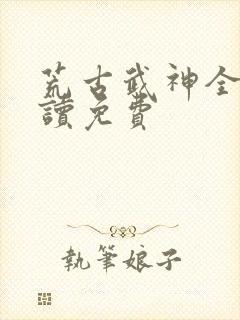 荒古武神全
讀免費
執筆娘子